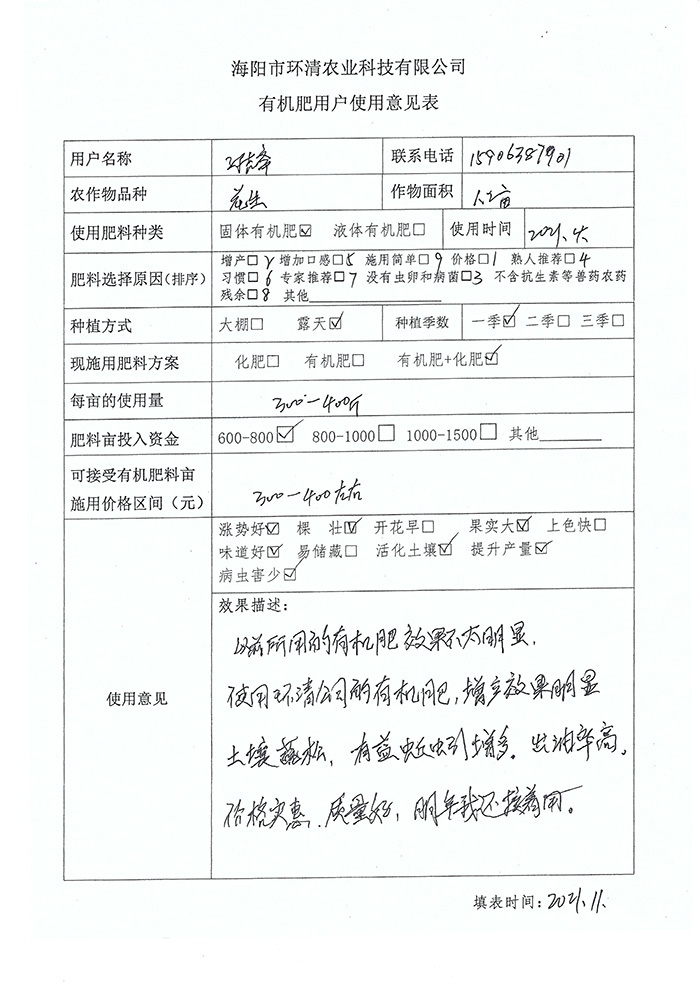 海阳市环清农业科技有限公司
有机肥用户使用意见表
用户名称 联系电话 15906387901
农作物品种 花生 作物面积 亩
使用肥料种类 固体有机肥☑ 液体有机肥□ 使用时间 2021.
肥料选择原因(排序) 增产□2 增加口感□5 施用简单□9 价格□1 熟人推荐□4
习惯□6 专家推荐□7 没有虫卵和病菌□3 不含抗生素等兽药农药
残余□8 其他
种植方式 大棚□ 露天☑ 种植季数 一季☑ 二季□ 三季□
现施用肥料方案 化肥□ 有机肥□ 有机肥+化肥☑
每亩的使用量 300-400斤
肥料亩投入资金 600-800☑ 800-1000□ 1000-1500□ 其他
可接受有机肥料亩
施用价格区间（元） 300-400左右
使用意见
涨势好☑ 棵 壮☑ 开花早□ 果实大☑ 上色快□
味道好☑ 易储藏□ 活化土壤☑ 提升产量☑
病虫害少☑
效果描述：
以前所用的有机肥效果不太明显.
使用环清公司的有机肥,增产效果明显
土壤疏松,有益蚯蚓增多.出油率高.
价格实惠.质量好,明年我还接着用。
填表时间：2021.11.